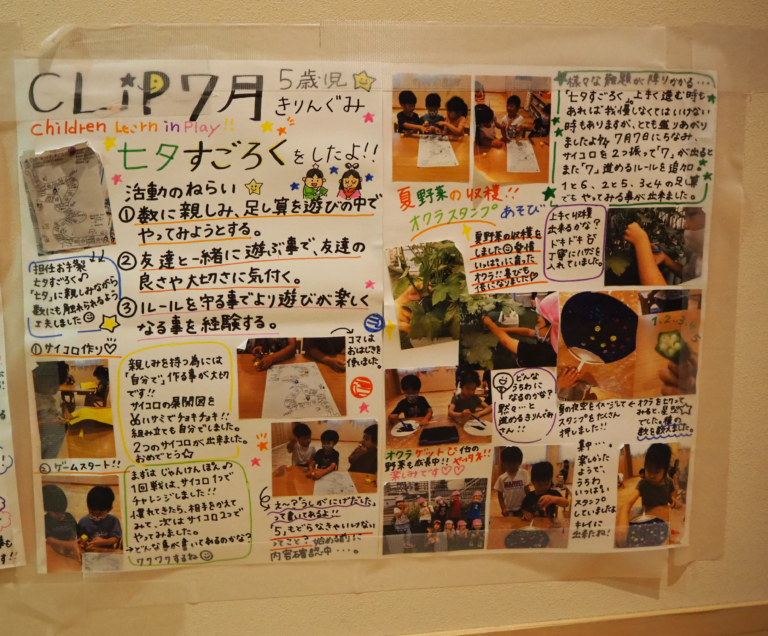 CLiP7月
5歳児
きりんぐみ
Children Learn in Play!!
七夕すごろくをしたよ!!
活動のねらい
①数に親しみ、足し算を遊びの中で
やってみようとする。
②友達と一緒に遊ぶ事で、友達の
良さや大切さに気付く。
③ルールを守る事でより遊びが楽しく
なる事を経験する。
担任お手製
七夕すごろく♪
「七夕」に親しみながら
数にも触れられるよう
工夫しました
①サイコロ作り♡
親しみを持つ為には
「自分で」作る事が大切
です!!
サイコロの展開図を
ハサミでチョキチョキ!!
組み立ても自分でしました。
2つのサイコロが出来ました。
おめでとう☆
コマは
おはじきを
使いました。
②ゲームスタート!!
まずはじゃんけんぽん♪
1回戦は、サイコロ1つで
チャレンジしました!!
慣れてきたら、相手をかえて
みて、次はサイコロ2つで
やってみました。
→どんな事が書いてあるのかな?
ワクワクするね
え〜?「うしがにげだした」
って書いてあるよ!!
「5」もどらなきゃいけない
ってこと?
内容確認中・・・。
様々な難題が降りかかる・・・
「七夕すごろく」。上手く進む時も
あれば我慢しなくてはいけない
時もありますが、とても盛りあがり
ましたよ 7月7日にちなみ、
サイコロを2つ振って「7」が出ると
また「7」進めるルールを追加。
1と6、2と5、3と4の足し算
でもやってみる事が出来ました。
夏野菜の収穫!!
オクラスタンプあそび
夏野菜の収穫を
しました 愛情
いっぱいに育った
オクラ!!喜びも
倍になりました♡
上手く収穫
出来るかな?
ドキドキ
丁寧にハサミを
入れていました。
どんな
うちわに
なるのかな?
黙々・・と
進めるきりんぐみ
さん!!
夏の夜空をイメージして
スタンプをたくさん
押しました!!
オクラを切って
みると、星型☆
でした。種の
数を数えました。
オクラゲット 他の
野菜も成長中!!
楽しみです♡♡
集中・・・
楽しかった
ようで、
うちわ
いっぱいに
スタンプ
していましたよ
キレイに
出来たね!